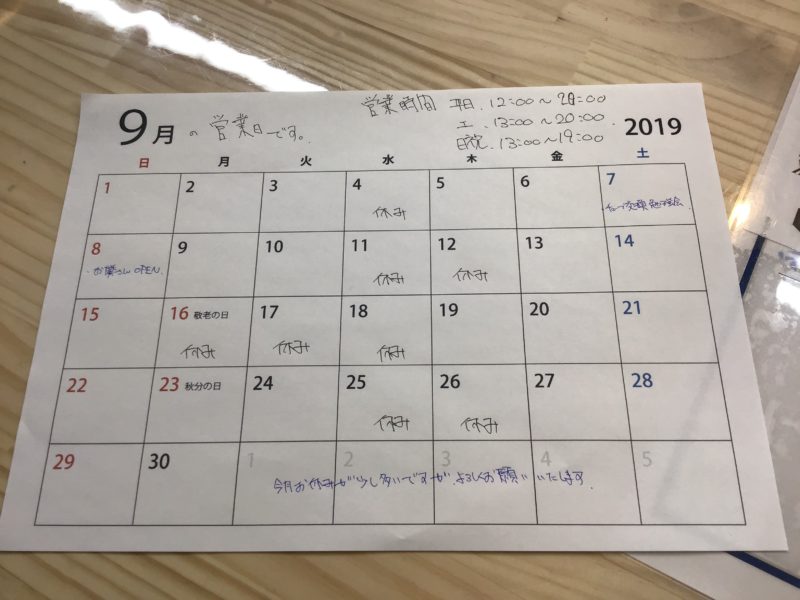 9月 の営業日です。
営業時間 平日. 12:00～20:00
土. 13:00～20:00.
日祝. 13:00～19:00
2019
日 月 火 水 木 金 土
1 2 3 4 5 6 7
休み
チューブ交換勉強会.
8 9 10 11 12 13 14
・お葉さん OPEN.
休み 休み
15 16 敬老の日 17 18 19 20 21
休み 休み 休み
22 23 秋分の日 24 25 26 27 28
休み 休み
29 30 1 2 3 4 5
今月お休みが少し多いですが、よろしくお願いいたします.